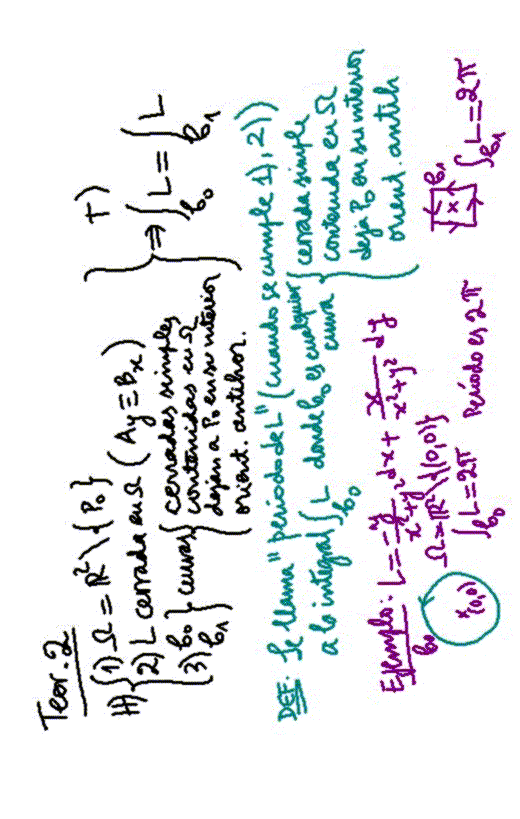 Teor. 2
H) { 1) Ω = ℝ² \ {P₀}
2) L cerrada en Ω (Ay = Bx)
3) b₀ b₁ } curvas { cerradas simples
contenidas en Ω
dejan a P₀ en su interior
orient. antihor.
} T)
⇒ ∫b₀ L = ∫b₁ L
DEF. Se llama "periodo de L" (cuando se cumple 1), 2))
a la integral ∫b₀ L donde b₀ es cualquier curva { cerrada simple
contenida en Ω
deja P₀ en su interior
orient. antih
Ejemplo: L = -y/(x²+y²) dx + x/(x²+y²) dy
Ω = ℝ² \ {(0,0)}
b₀
x (0,0)
∫b₀ L = 2π
Período es 2π
x
b₁
∫b₁ L = 2π